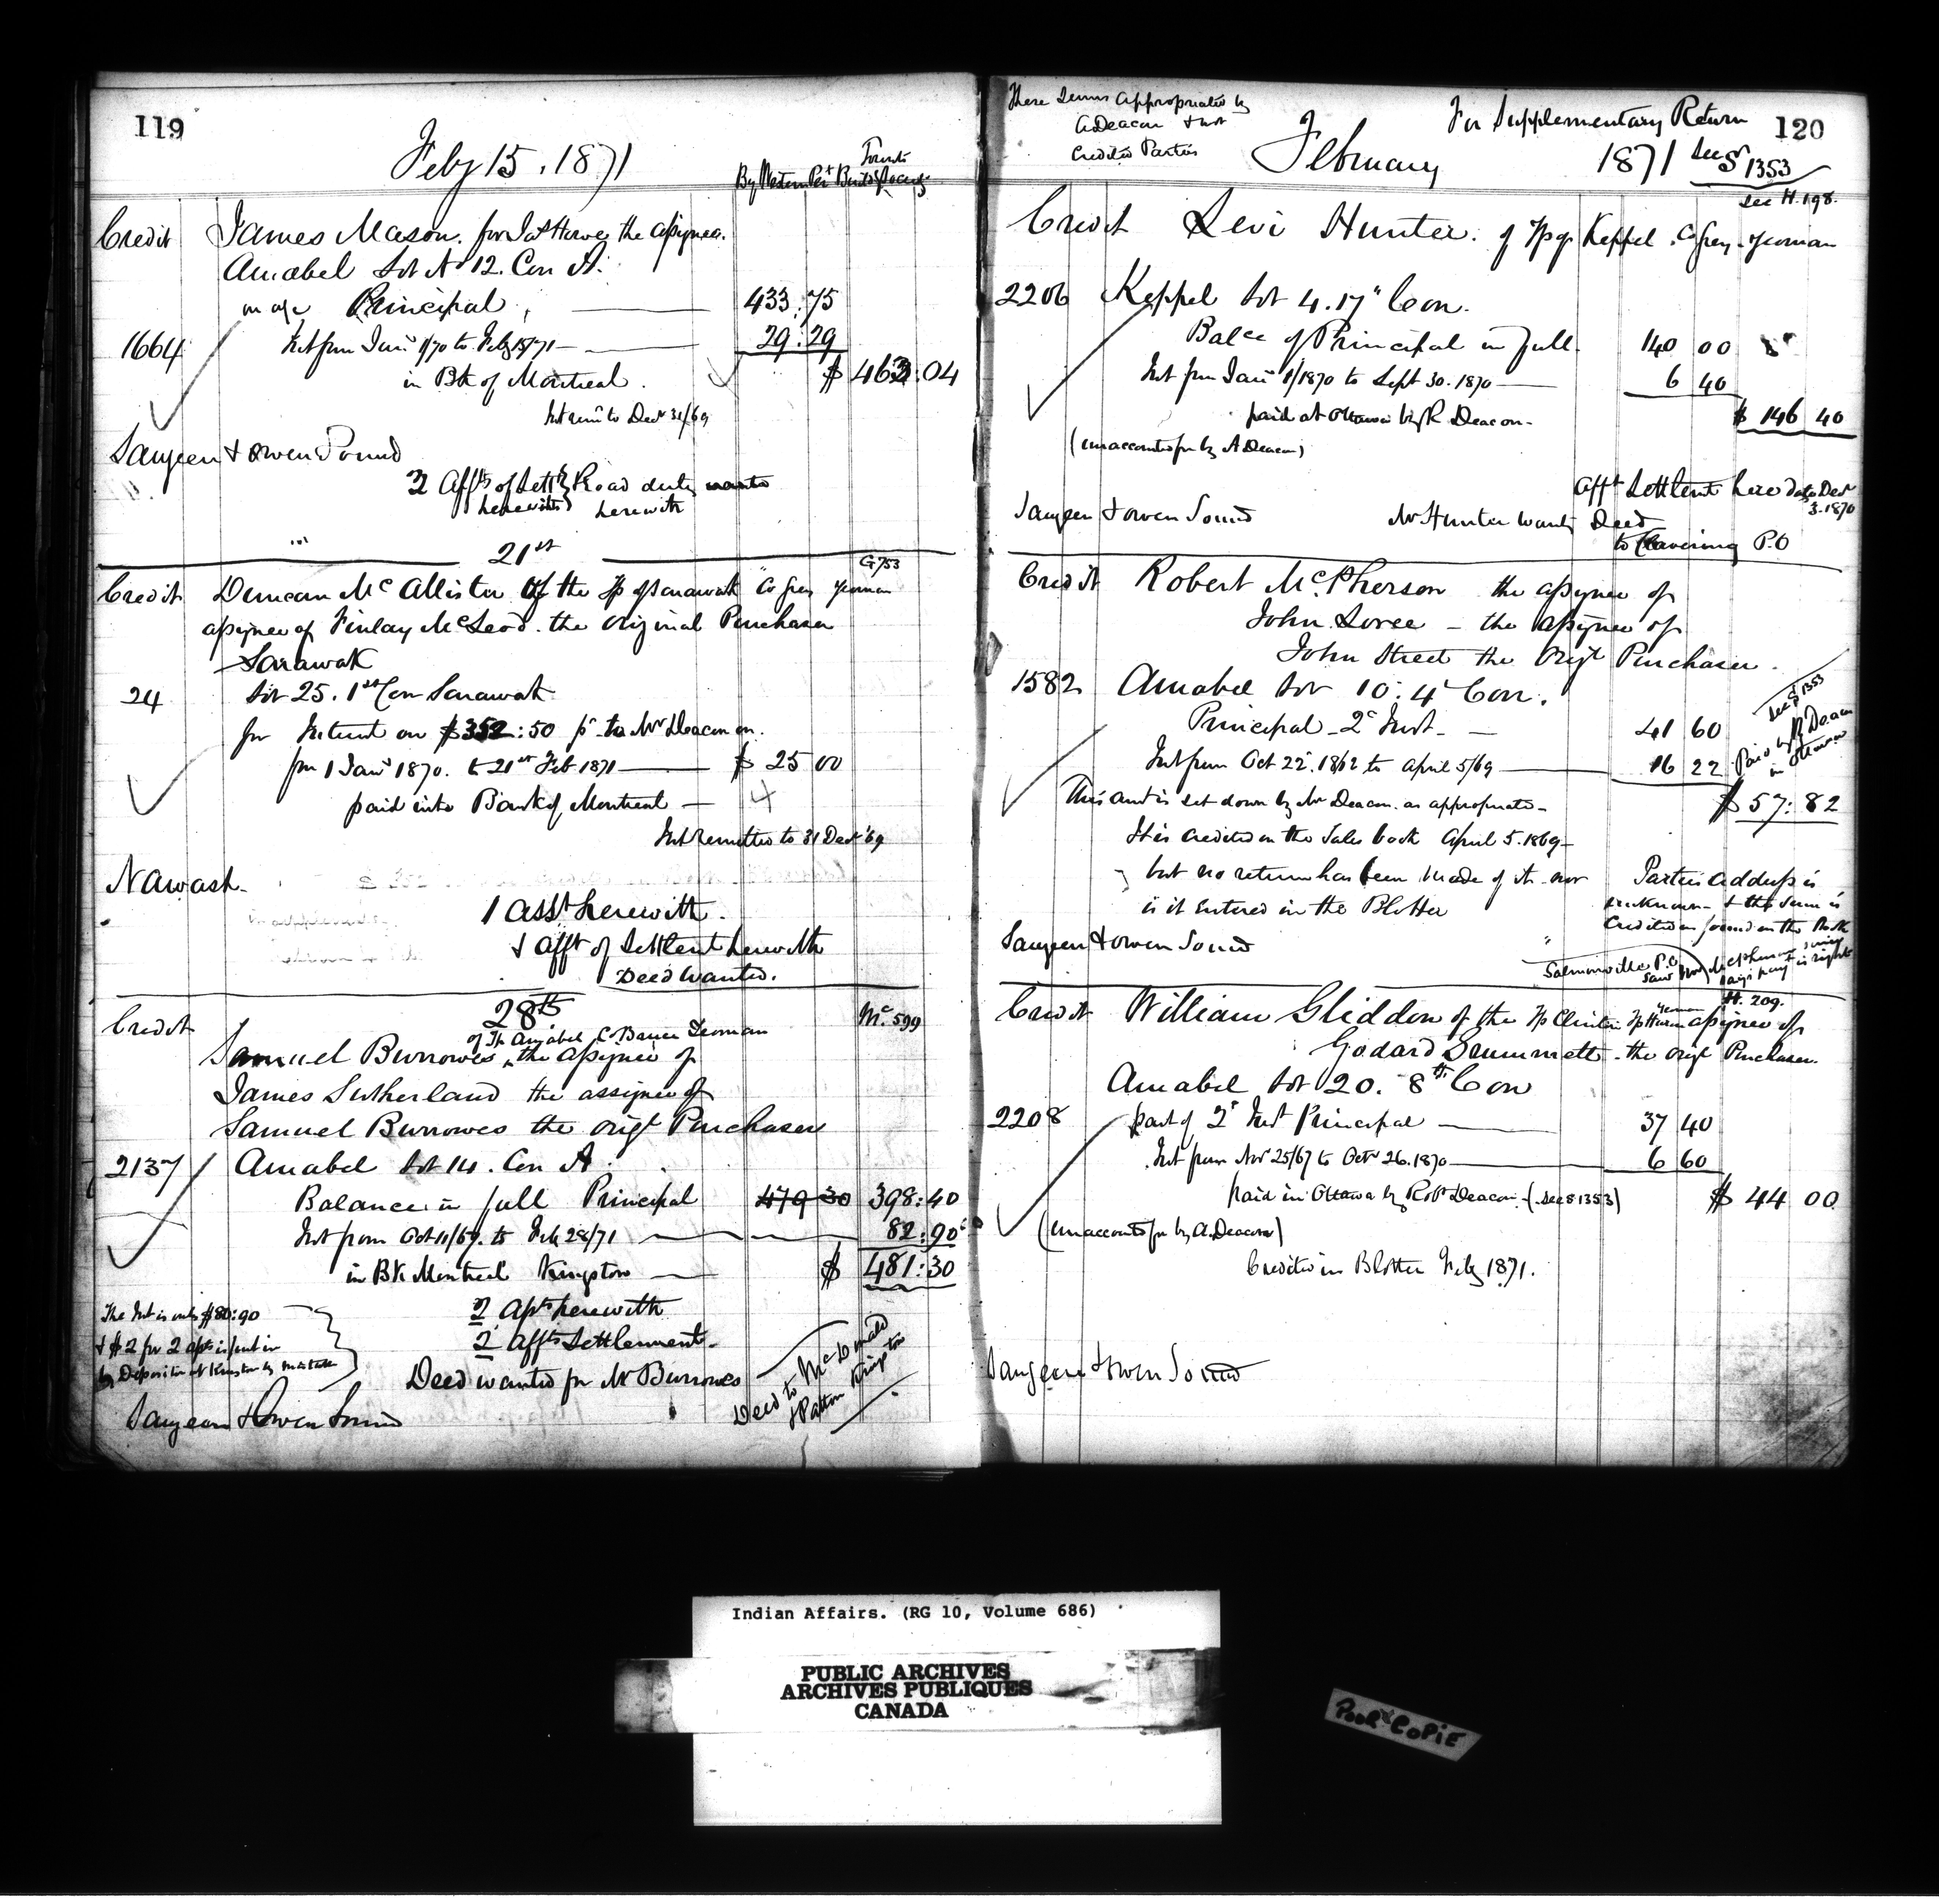 119
Feby 15, 1871
Toronto
By Western Per Build Society
Credit James Mason. for Jas Howe the assignee.
Amabel Lot No 12. Con A.
on a/c Principal, 433.75
1664 Int from Jany 1/70 to Feby 15/71 29.29
in Bk of Montreal. $ 463.04
Int rem to Decr 31/69
Saugeen & Owen Sound
2 Affts of Settt & Road duty wants
herewith herewith
21st
G 753
Credit Duncan McAllister of the Tp of Sarawak Co Grey yeoman
assignee of Finlay McLeod. the original Purchaser
Sarawak
24 Lot 25. 1st Con Sarawak
for Interest on $352:50 pd to Mr Deacon on.
from 1 Jany 1870. to 21st Feb 1871 $ 25 00
paid into Bank of Montreal
Int remitted to 31 Decr '69
Nawash.
1 Asst herewith.
& Afft of Settlent herewith
Deed Wanted.
28th
Mc 599
Credit of Tp Amabel Co Bruce Yeoman
Samuel Burrowes, the assignee of
James Sutherland the assignee of
Samuel Burrowes the origl Purchaser
2137 Amabel Lot 14. Con A.
Balance in full Principal 479 30 398:40
Int from Oct 11/67. to Feb 28/71 82:90
in Bk Montreal Kingston $ 481:30
The Int is only $80:90
& $2 for 2 assts is put in
by Depositor at Kingston by mistake
2 Assts herewith
2 Affts Settlement.
Deed wanted for Mr Burrowes
Deed to McDonald
& Patton Kingston
Saugeen & Owen Sound
These sums appropriated by
A Deacon & not
Credited Parties
For Supplementary Return 120
February 1871 See S 1353
See H. 198.
Credit Levi Hunter. of Tp of Keppel. Co Grey. yeoman
2206 Keppel Lot 4. 17" Con.
Balce of Principal in full. 140 00
Int from Jany 1/1870 to Sept 30. 1870 6 40
paid at Ottawa by R Deacon. $ 146 40
(unaccounted for by A Deacon)
Afft Settlent here Decr
3. 1870
Saugeen & Owen Sound Mr Hunter wants Deed
to Clavering P.O
Credit Robert McPherson the assignee of
John Loree - the assignee of
John Street the Origl Purchaser.
1582 Amabel Lot 10. 4" Con.
See S 1353
Principal 2d Inst. 41 60
Int from Oct 22. 1862 to April 5/69 16 22
Paid by R Deacon
in Ottawa
This amt is set down by Mr Deacon as appropriate $ 57:82
It is credited in the Sales book April 5. 1869
but no return has been made of it nor
is it entered in the Blotter
Parties address is
unknown & the sum is
credited as found in the Book
Saugeen & Owen Sound
Salmonville P.O.
Credit William Gliddon of the Tp Clinton Tp Huron Yeoman assignee of
H. 209.
Godard Grummett. the origl Purchaser.
Amabel Lot 20. 8th Con
2208 part of 2d Inst Principal 37 40
Int from Nov 25/67 to Octr 26. 1870 6 60
paid in Ottawa by Robt Deacon (See S 1353) $ 44 00
(unaccountd for by A. Deacon)
Credited in Blotter Feby 1871.
Saugeen & Owen Sound
Indian Affairs. (RG 10, Volume 686)
PUBLIC ARCHIVES
ARCHIVES PUBLIQUES
CANADA
POOR COPIE